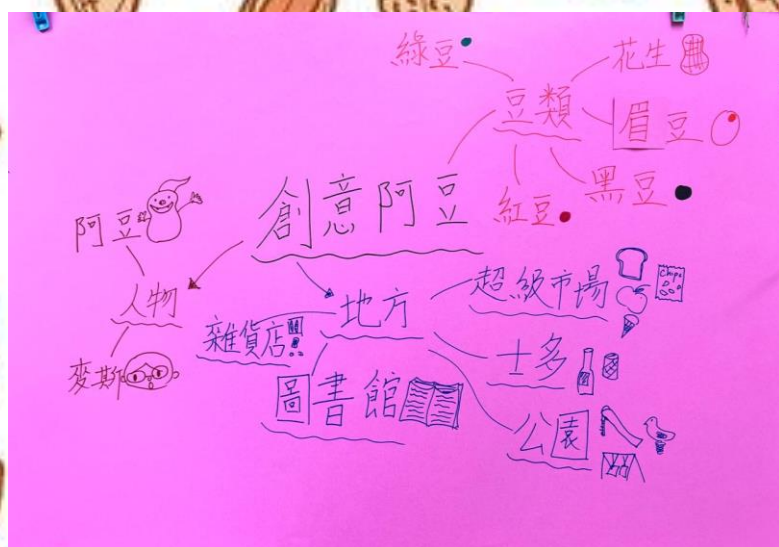 創意阿豆
豆類
綠豆
花生
眉豆
黑豆
紅豆
人物
阿豆
麥斯
地方
超級市場
Chips
士多
公園
圖書館
雜貨店